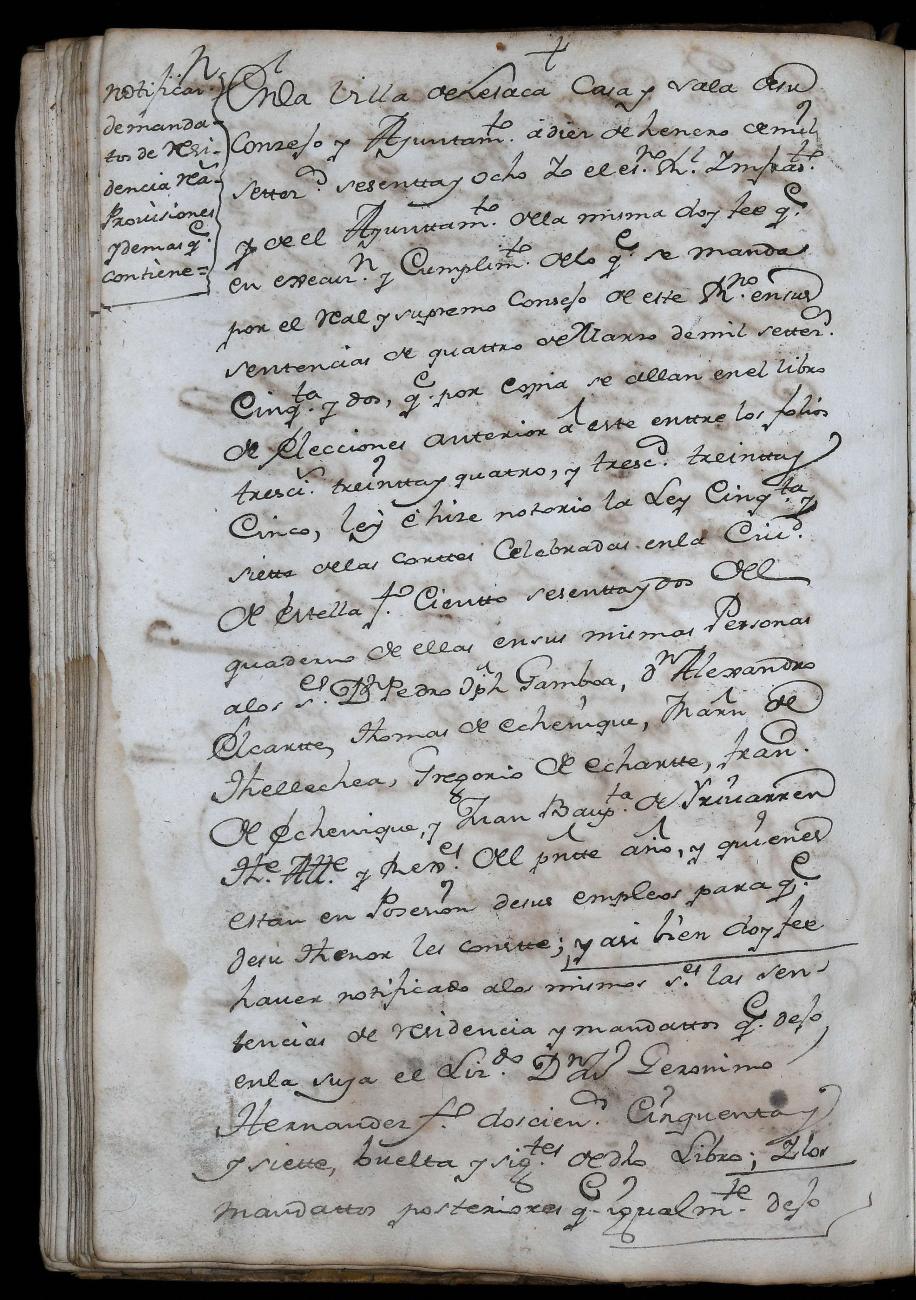 notificaon.
demanda-
tos de resi-
dencia rs.
Provisiones
ydemas q.e
contiene=
En la Villa de Lesaca Casa y Sala de su
Conzejo y Ayuntam.to a diez de henero de mil
settez.s sesentta y ocho Yo el es.no R.l Ynfrao.to
y de el Ayunttam.to della misma doy fee q.e
en execuz.n y Cumplim.to delo q.e se manda
por el Real y supremo Consejo de este R.no en sus
sentencias de quattro de Marzo de mil settez.s
Cinq.ta y dos, q.e por copia se allan en el libro
de Elecciones anterior a este enttre los folios
tresci.s treintta y quatro, y tresc.s treintta y
Cinco, ley è hize notorio la Ley Cinq.ta y
siette dellas corttes Celebradas enla Ciu.d
de Estella f.o Cientto sesentta y dos del
quaderno de ellas en sus mismas Personas
alos s.es D.n Pedro Jph Gamboa, d.n Alexandro
Elcartte, Thomas de echenique, Marn de
Thellechea, Gregorio de echartte, fran.co
de Echenique, y Juan Baup.ta de Yrivarren
Th.e Alle y Rex.es del pntte año, y quienes
estan en Posesion desus empleos para q.e
desu Thenor les constte; y asi bien doy fee
haver notificado alos mismos s.es las sen-
tencias de residencia y mandattos q.e dejo
enla suya el Liz.do D.n Geronimo
Hernandez f.o doscien.s Cinquenta y
y siette, buelta y sig.tes de dho Libro; Y los
mandattos posteriores q.e igualm.te dejo